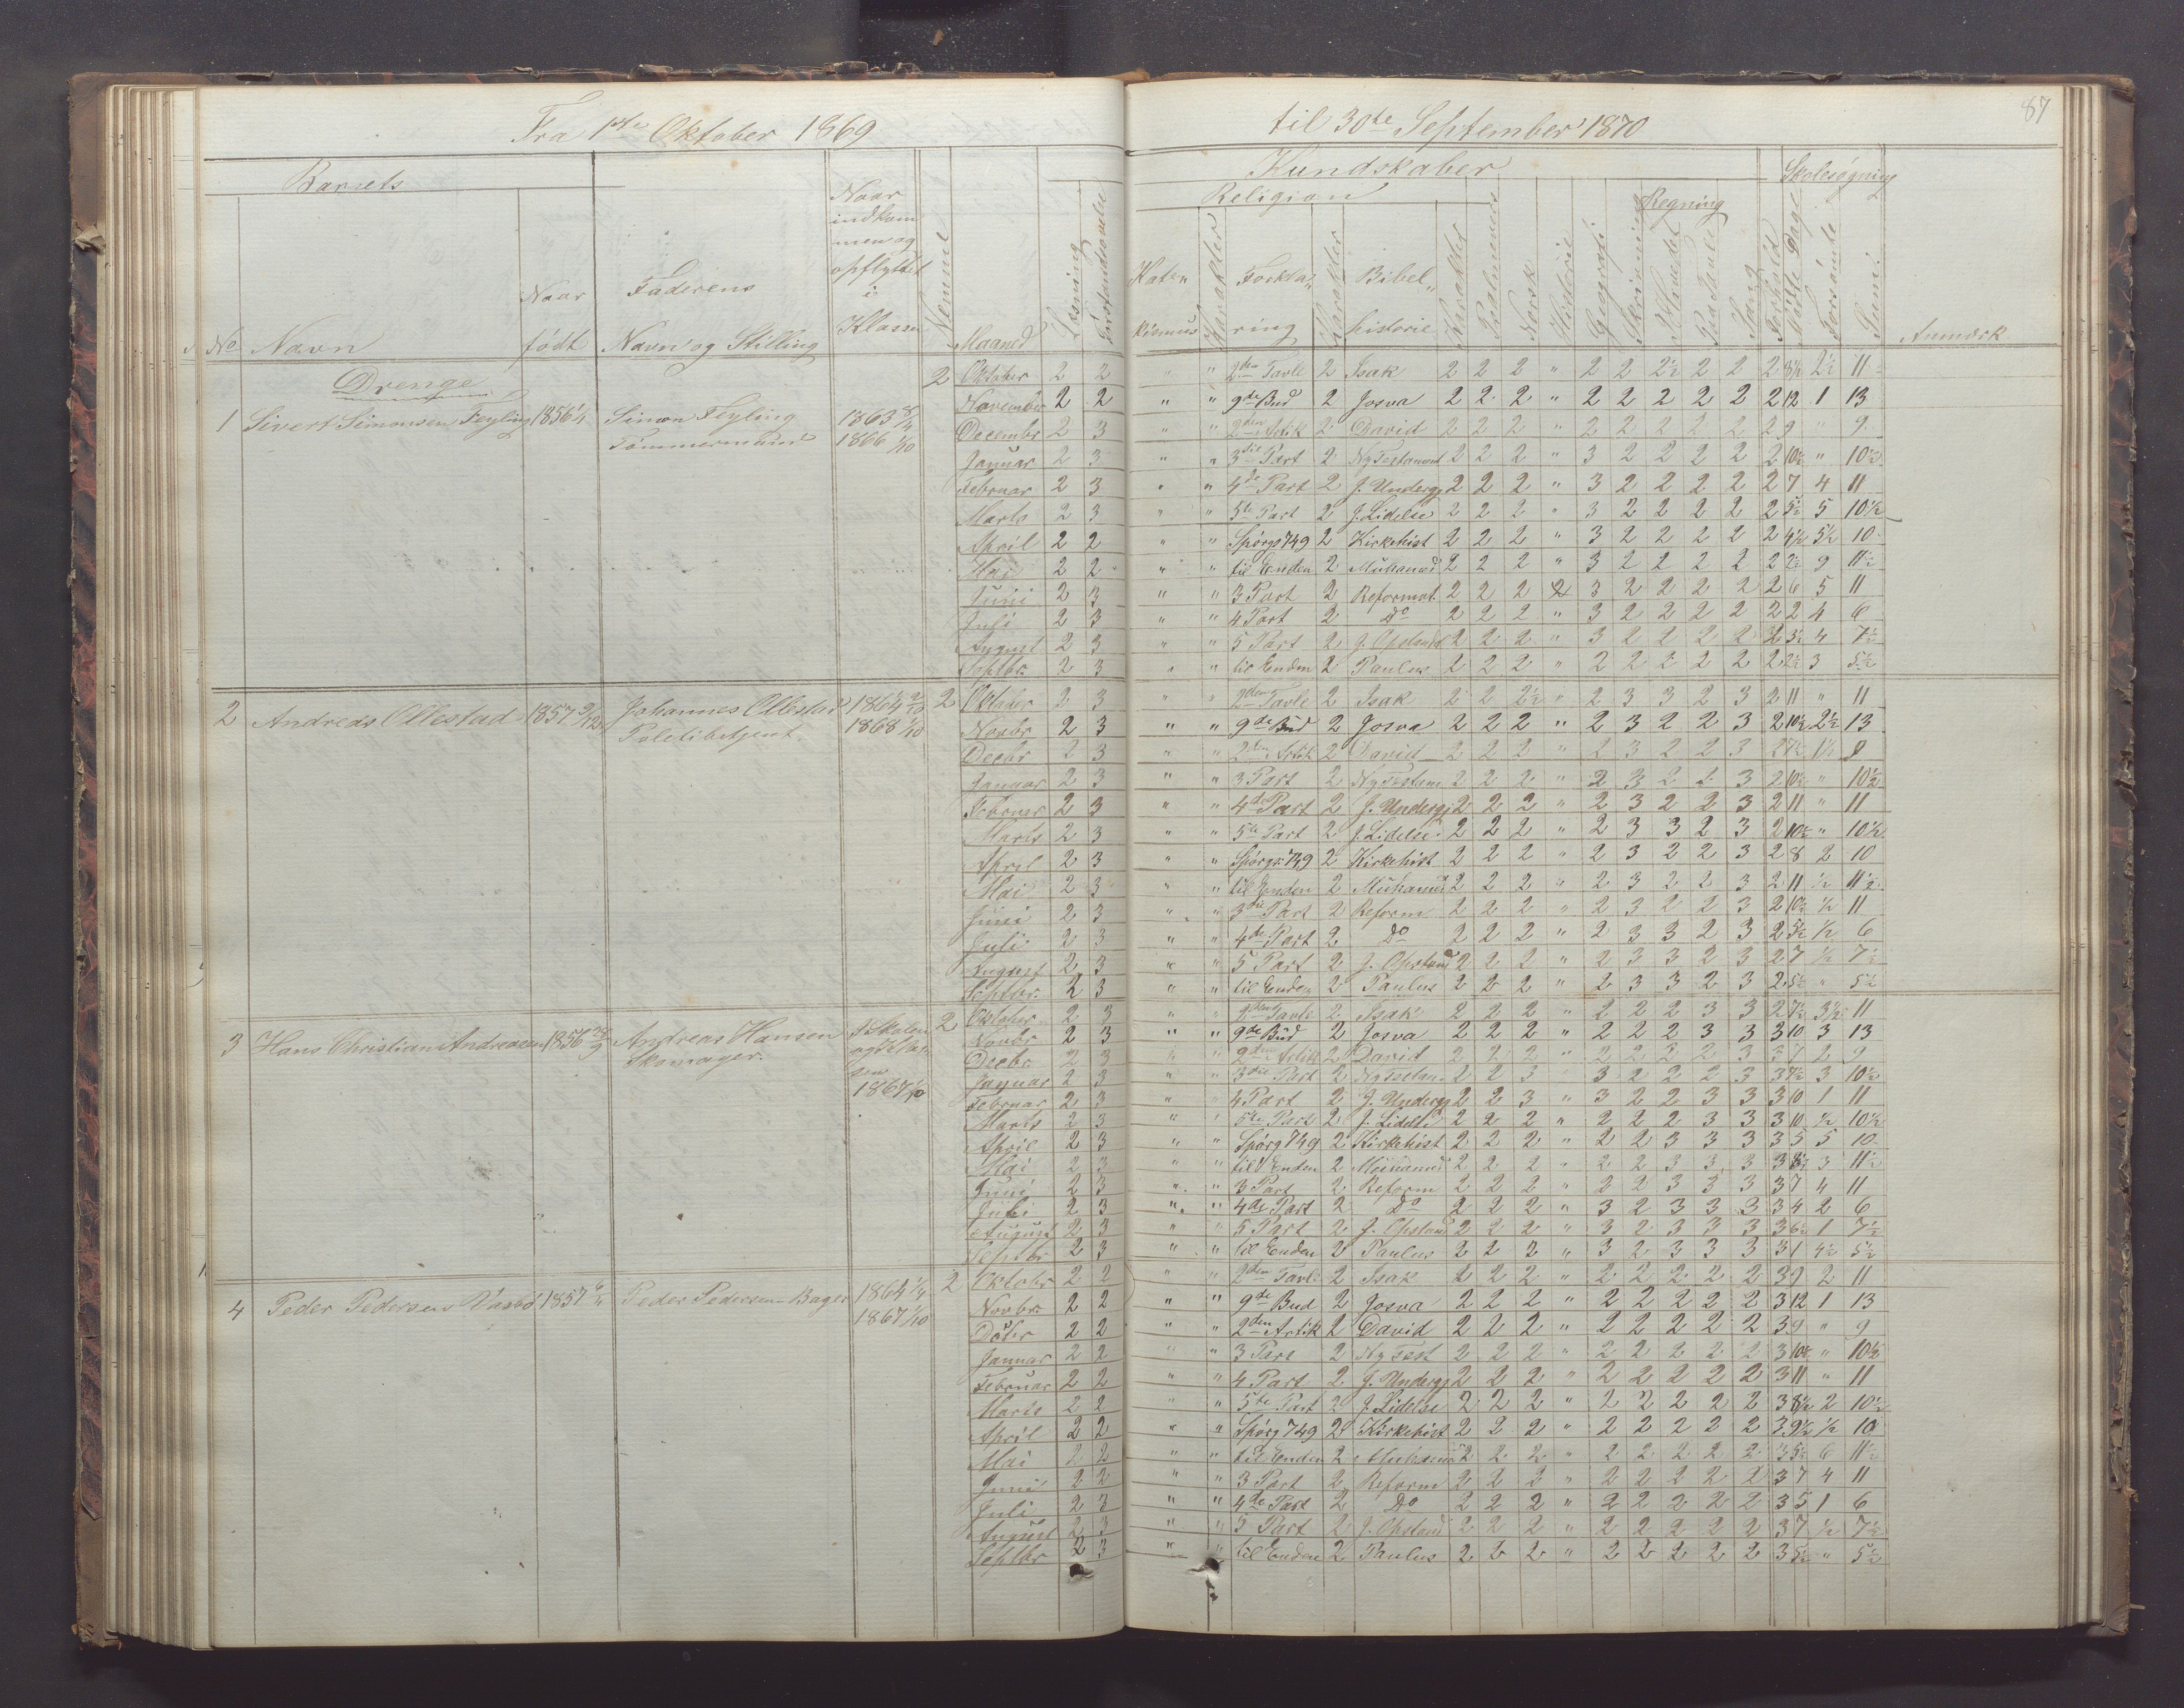 Fra 1ste Oktober 1869
til 30te September 1870
87
Barnets
Kundskaber
Skolesøgning
Religion
Regning
No
Navn
Naar født
Faderens Navn og Stilling
Naar indkommen og opflyttet i Klassen
Nemme
Maaned
Læsning
Katekismus
Karakter
Forklaring
Karakter
Bibelhistorie
Karakter
Norsk
Historie
Geografi
Skrivning
Paa Tavle
Sang
Forhold
Mødte Dage
Forsømte
Sum
Anmærk
Drenge
1 Sivert Simonsen Feyling 1856 Simon Feyling Tømmermand 1863 1866 1/10
2 Oktober 2 2 " " 2den Tavle 2 Isak 2 2 2 " 2 2 2½ 2 2 2 8½ 2½ 11
November 2 2 " " 9de Bud 2 Josva 2 2 2 " 2 2 2 2 2 2 12 1 13
Decembr 2 3 " " 2den Artik 2 David 2 2 2 " 2 2 2 2 2 2 9 " 9
Januar 2 3 " " 3die Part 2 Ny Testament 2 2 2 " 3 2 2 2 2 2 10½ " 10½
Februar 2 3 " " 4de Part 2 J. Underg 2 2 2 " 3 2 2 2 2 2 7 4 11
Marts 2 3 " " 5te Part 2 J. Lidelse 2 2 2 " 3 2 2 2 2 2 5½ 5 10½
April 2 2 " " Spørgs 749 2 Kirkehist 2 2 2 " 3 2 2 2 2 2 4½ 5½ 10
Mai 2 2 " " til Enden 2 Muhamed 2 2 2 " 3 2 2 2 2 2 2½ 9 11½
Juni 2 3 " " 3 Part 2 Reformat. 2 2 2 2 3 2 2 2 2 2 6 5 11
Juli 2 3 " " 4 Part 2 Do 2 2 2 " 3 2 2 2 2 2 2 4 6
August 2 3 " " 5 Part 2 2 2 2 " 3 2 2 2 2 2 3½ 4 7½
Septbr. 2 3 " " til Enden 2 Paulus 2 2 2 " 2 2 2 2 2 2 2½ 3 5½
2 Andreas Ollestad 1857 9/12 Johannes Ollestad Politibetjent. 1864 1868 1/10
2 Oktober 2 3 " " 2den Tavle 2 Isak 2 2 2½ " 2 3 3 2 3 2 11 " 11
Novbr 2 3 " " 9de Bud 2 Josva 2 2 2 " 2 3 2 2 3 2 10½ 2½ 13
Decbr 2 3 " " 2den Artik 2 David 2 2 2 " 2 3 2 2 3 2 7½ 1½ 9
Januar 2 3 " " 3 Part 2 Ny Testam 2 2 2 " 2 3 2 2 3 2 10½ " 10½
Februar 2 3 " " 4de Part 2 J. Underg 2 2 2 " 2 3 2 2 3 2 11 " 11
Marts 2 3 " " 5te Part 2 J. Lidelse 2 2 2 " 2 3 3 2 3 2 10½ " 10½
April 2 3 " " Spørgs 749 2 Kirkehist 2 2 2 " 2 3 2 2 3 2 8 2 10
Mai 2 3 " " til Enden 2 Muhamed 2 2 2 " 2 3 2 2 3 2 11 ½ 11½
Juni 2 3 " " 3die Part 2 Reform 2 2 2 " 2 3 2 2 3 2 10½ ½ 11
Juli 2 3 " " 4de Part 2 Do 2 2 2 " 2 3 3 2 3 2 5½ ½ 6
August 2 3 " " 5 Part 2 2 2 2 " 2 3 3 2 3 2 7 ½ 7½
Septbr. 2 3 " " til Enden 2 Paulus 2 2 2 " 2 3 3 2 3 2 5½ " 5½
3 Hans Christian Andreasen 1856 Andreas Hansen Skomager. i Skolen og Klassen 1867 1/10
2 Oktober 2 3 " " 2den Tavle 2 Isak 2 2 2 " 2 2 2 3 3 2 7½ 3½ 11
Novbr. 2 3 " " 9de Bud 2 Josva 2 2 2 " 2 2 2 3 3 3 10 3 13
Decbr. 2 3 " " 2den Artik 2 David 2 2 2 " 2 2 2 2 3 3 7 2 9
Januar 2 3 " " 3die Part 2 Ny Testam 2 2 3 " 3 2 2 2 3 3 7½ 3 10½
Februar 2 3 " " 4 Part 2 J. Underg 2 2 3 " 3 2 2 3 3 3 10 1 11
Marts 2 3 " " 5te Part 2 J. Lidelse 2 2 2 " 2 2 2 3 3 3 10 ½ 10½
April 2 3 " " Spørg 749 2 Kirkehist 2 2 2 " 2 2 3 3 3 3 5 5 10
Mai 2 3 " " til Enden 2 Muhamed 2 2 2 " 2 2 3 3 3 3 8½ 3 11½
Juni 2 3 " " 3 Part 2 Reform 2 2 2 " 2 2 3 3 3 3 7 4 11
Juli 2 3 " " 4de Part 2 Do 2 2 2 " 3 2 3 3 3 3 4 2 6
August 2 3 " " 5 Part 2 2 2 2 " 3 2 3 3 3 3 6½ 1 7½
Septbr 2 3 " " til Enden 2 Paulus 2 2 2 " 3 2 3 3 3 3 1 4½ 5½
4 Peder Pedersen Vasbø 1857 6/11 Peder Pedersen Bager 1864 1/4 1867 1/10
2 Oktobr 2 2 " " 2den Tavle 2 Isak 2 2 2 " 2 2 2 2 2 3 9 2 11
Novbr. 2 2 " " 9de Bud 2 Josva 2 2 2 " 2 2 2 2 2 3 12 1 13
Dcbr 2 2 " " 2den Artik 2 David 2 2 2 " 2 2 2 2 2 3 9 " 9
Januar 2 2 " " 3 Part 2 Ny Test 2 2 2 " 2 2 2 2 2 3 10½ " 10½
Februar 2 2 " " 4 Part 2 J. Underg 2 2 2 " 2 2 2 2 2 3 11 " 11
Marts 2 2 " " 5te Part 2 J. Lidelse 2 2 2 " 2 2 2 2 2 3 8½ 2 10½
April 2 2 " " Spørg 749 2 Kirkehist 2 2 2 " 2 2 2 2 2 3 9½ ½ 10
Mai 2 2 " " til Enden 2 Muhamed 2 2 2 " 2 2 2 2 2 3 5½ 6 11½
Juni 2 2 " " 3 Part 2 Reform 2 2 2 " 2 2 2 2 2 3 7 4 11
Juli 2 3 " " 4de Part 2 Do 2 2 2 " 2 2 2 2 2 3 5 1 6
August 2 3 " " 5 Part 2 2 2 2 " 2 2 2 2 2 3 7 ½ 7½
Septbr 2 3 " " til Enden 2 Paulus 2 2 2 " 2 2 2 2 2 3 5½ " 5½